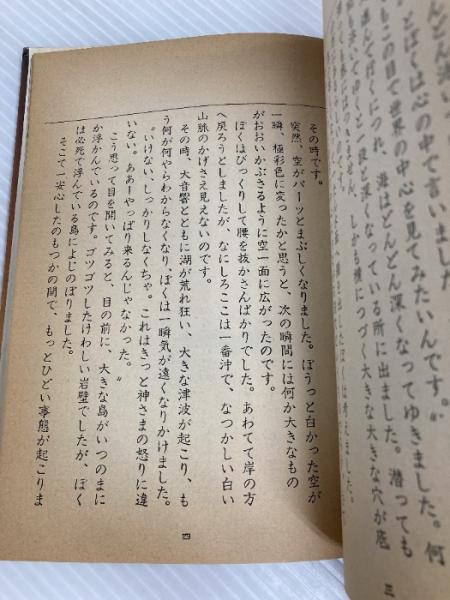 んどん泳い
とぼくは心の
てもこの目で世界の中心を見てみたいんです。〟
んで行くにつれ、海はどんどん深くなってゆきました。何
なっている所に出ました。潜っても
につづく大きな大きな穴が底
三
その時です。
突然、空がパーッとまぶしくなりました。ぼうっと白かった空が
一瞬、極彩色に変ったかと思うと、次の瞬間には何か大きなもの
がおおいかぶさるように空一面に広がったのです。
ぼくはびっくりして腰を抜かさんばかりでした。あわてて岸の方
へ戻ろうとしましたが、なにしろここは一番沖で、なつかしい白い
山脈のかげさえ見えないのです。
その時、大音響とともに湖が荒れ狂い、大きな津波が起こり、も
う何が何やらわからなくなり、ぼくは一瞬気が遠くなりかけました。
〝いけない、しっかりしなくちゃ。これはきっと神さまの怒りに違
いない。ああーやっぱり来るんじゃなかった。〟
こう思って目を開いてみると、目の前に、大きな島がいつのまに
か浮かんでいるのです。ゴツゴツしたけわしい岩壁でしたが、ぼく
は必死で浮んでいる島によじのぼりました。
そこで一安心したのもつかの間で、もっとひどい事態が起こりま
四